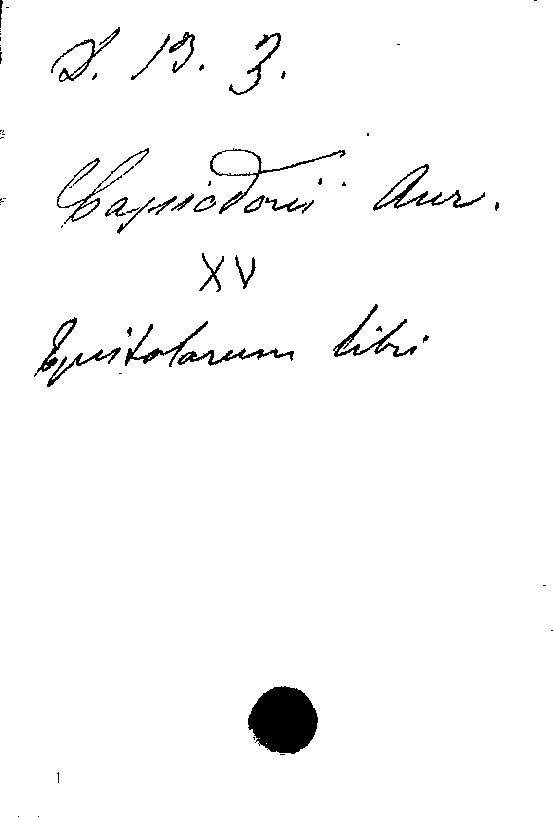 D. 13. 3.
Cassiodorii Aur.
XV
Epistolarum libri
1